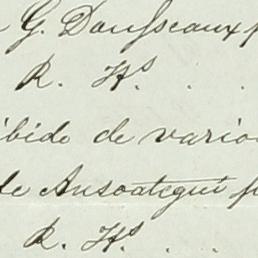 G. Dousseaux p
R. Hs. . .
ibido de vario
de Ansoategui p
R. Hs. . .